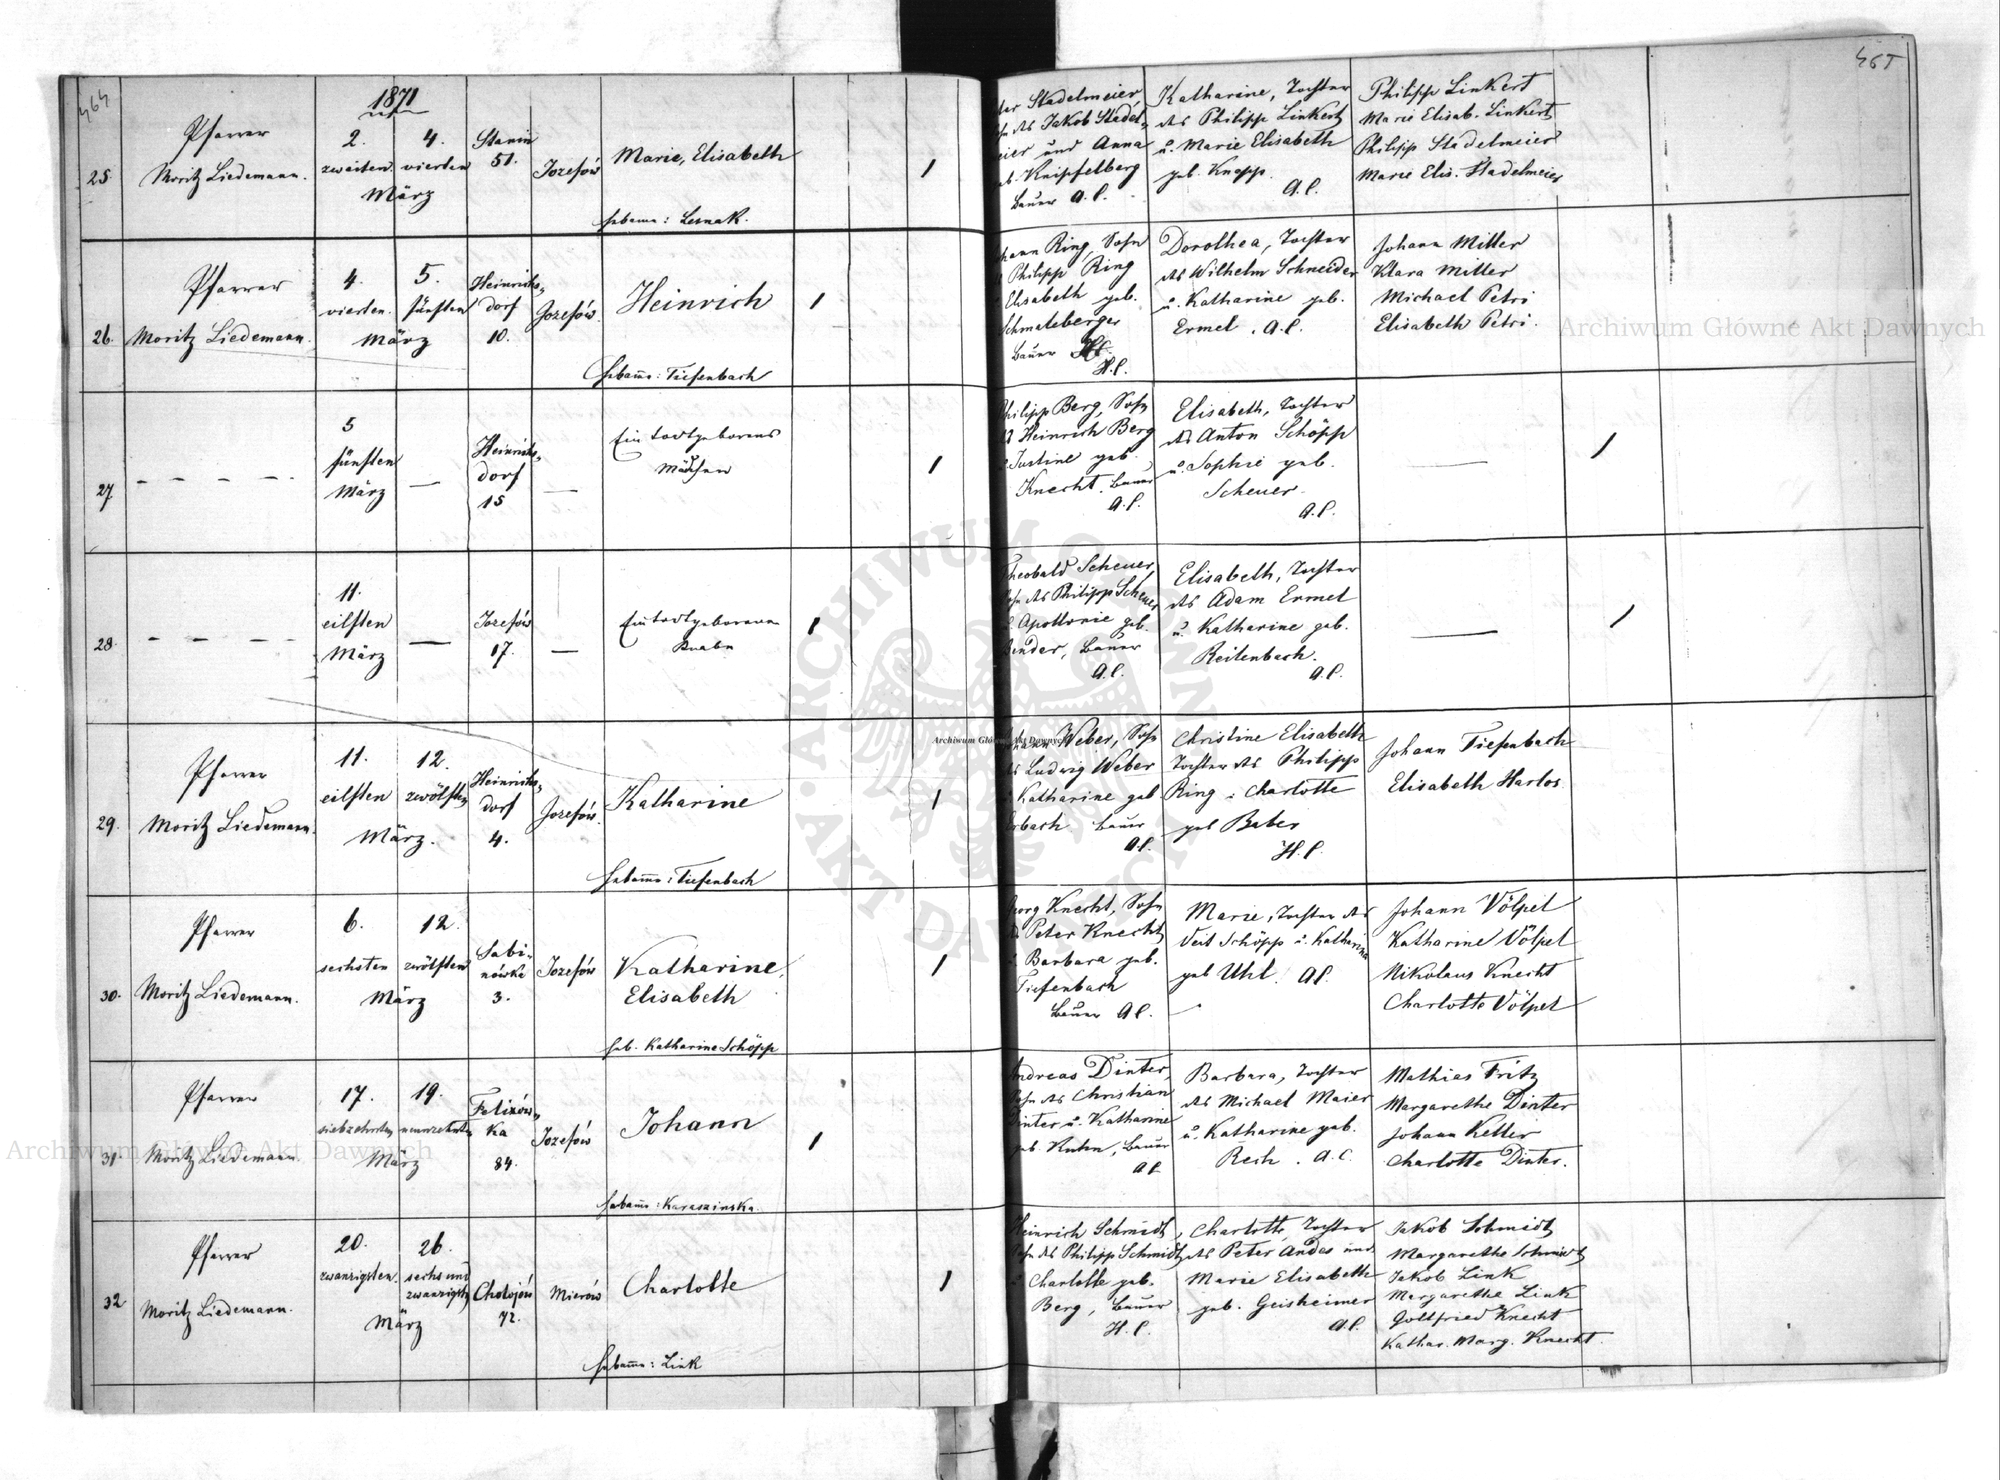 464
465
1871
25.
Pfarrer
Moritz Liedemann.
2. 4.
zweiten. vierten
März
Stanin
51.
Jozefów
Marie, Elisabeth
Hebamme: Lesnak.
Stadelmeier,
des Jakob Stadel-
meier und Anna
geb. Knipfelberg
Bauer A. C.
Katharine, Tochter
des Philipp Linkert
u. Marie Elisabeth
geb. Knapp.
A. C.
Philipp Linkert
Marie Elisab. Linkert
Philipp Stadelmeier
Marie Elis. Stadelmeier
26.
Pfarrer
Moritz Liedemann.
4. 5.
vierten. fünften
März
Heinrichs-
dorf
10.
Jozefów.
Heinrich
Hebamme: Tiefenbach
Johann Ring, Sohn
Philipp Ring
Elisabeth geb.
Schmaleberger
Bauer
H. C.
Dorothea, Tochter
des Wilhelm Schneider
u. Katharine geb.
Ermel. A. C.
Johann Miller
Klara Miller
Michael Petri
Elisabeth Petri.
27
5
fünften
März
Heinrichs-
dorf
15
Ein todtgeborenes
Mädchen
Philipp Berg, Sohn
Heinrich Berg
Justine geb.
Knecht. Bauer
A. C.
Elisabeth, Tochter
des Anton Schöpp
u. Sophie geb.
Scheuer.
A. C.
28.
11.
eilften
März
Jozefów
17.
Ein todtgeborener
Knabe
Theobald Scheuer,
Sohn des Philipp Scheuer
Apollonie geb.
Binder, Bauer
A. C.
Elisabeth, Tochter
des Adam Ermel
u. Katharine geb.
Reitenbach.
A. C.
29.
Pfarrer
Moritz Liedemann.
11. 12.
eilften zwölften
März.
Heinrichs-
dorf
4.
Jozefów.
Katharine
Hebamme: Tiefenbach
Johann Weber, Sohn
des Ludwig Weber
Katharine geb
Erbach. Bauer
A. C.
Christine Elisabeth
Tochter des Philipp
Ring u. Charlotte
geb Baber
H. C.
Johann Tiefenbach
Elisabeth Harlos
30.
Pfarrer
Moritz Liedemann.
6. 12.
sechsten zwölften
März
Sabi-
nówka
3.
Jozefów
Katharine,
Elisabeth
Heb. Katharine Schöpp
Georg Knecht, Sohn
Peter Knecht
Barbara geb.
Tiefenbach
Bauer A. C.
Marie, Tochter des
Veit Schöpp u. Katharina
geb Uhl. A. C.
Johann Völpel
Katharine Völpel
Nikolaus Knecht
Charlotte Völpel
31
Pfarrer
Moritz Liedemann.
17. 19.
siebzehnten neunzehnten
März
Felizów-
ka
84.
Jozefów
Johann
Hebamme: Karaszinska.
Andreas Dinter,
Sohn des Christian
Dinter u. Katharine
geb. Kuhn, Bauer
A. C.
Barbara, Tochter
des Michael Maier
u. Katharine geb.
Rech. A. C.
Mathias Fritz
Margarethe Dinter
Johann Keller
Charlotte Dinter.
32
Pfarrer
Moritz Liedemann.
20. 26.
zwanzigsten. sechs und
zwanzigsten
März
Chołojów
72.
Mierów
Charlotte
Hebamme: Link
Heinrich Schmidt,
Sohn des Philipp Schmidt
Charlotte geb.
Berg, Bauer
H. C.
Charlotte Tochter
des Peter Andas und
Marie Elisabeth
geb. Geisheimer
A. C.
Jakob Schmidt
Margarethe Schmidt
Jakob Link
Margarethe Link
Gottfried Knecht
Kathar. Marg. Knecht.
Archiwum Główne Akt Dawnych
Archiwum Główne Akt Dawnych
Archiwum Główne Akt Dawnych
ARCHIWUM GŁÓWNE AKT DAWNYCH